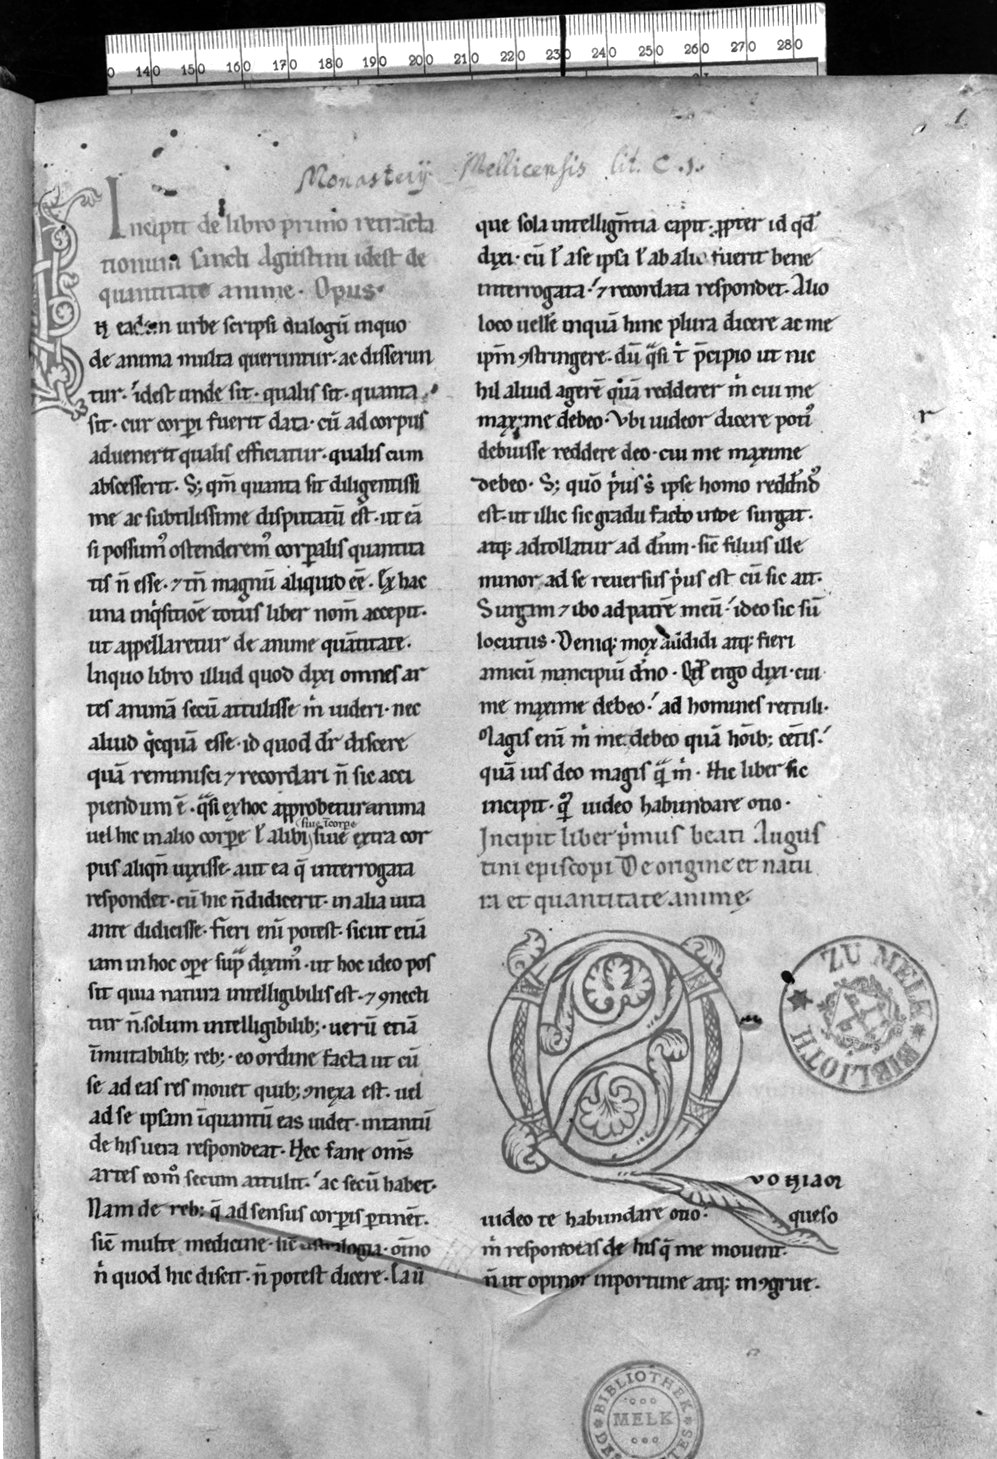 140 150 160 170 180 190 200 210 220 230 240 250 260 270 280
1
Monasterij Mellicensis lit. C. 1.
Incipit de libro primo retracta
tionum sancti Agustini idest de
quantitate anime. Opus.
IN eadem urbe scripsi dialogū inquo
de anima multa queruntur. ac disserun
tur. idest unde sit. qualis sit. quanta
sit. cur corpi fuerit data. cū ad corpus
aduenerit qualis efficiatur. qualis cum
abscesserit. S; qm̄ quanta sit diligentissi
me ac subtilissime disputatū est. ut eā
si possumꝰ ostenderemꝰ corpalis quantita
tis n̄ esse. ⁊ tn̄ magnū aliquid eē. Ex hac
una inqͥsitiōe totus liber nom̄ accepit.
ut appellaretur de anime quātitate.
Inquo libro illud quod dixi omnes ar
tes animā secū attulisse m̊ uideri. nec
aliud qͥcquā esse. id quod dr̄ discere
quā reminisci ⁊ recordari n̄ sic acci
piendum ē. qͣsi ex hoc approbetur anima
siue ī corpe
uel hic in alio corpe ł alibi siue extra cor
pus aliqn̄ uixisse. aut ea q̄ interrogata
respondet. cū hic n̄ didicerit. in alia uita
ante didicisse. fieri eni potest. sicut etiā
iam in hoc ope supͣ diximꝰ. ut hoc ideo pos
sit quia natura intelligibilis est. ⁊ ꝯnecti
tur n̄ solum intelligibilib;. uerū etiā
īmutabilib; reb;. eo ordine facta ut cū
se ad eas res mouet quib; ꝯnexa est. uel
ad se ipsam īquantū eas uidet. intantū
de his uera respondeat. Nec sane om̄s
artes eomꝰ secum attulit. ac secū habet.
Nam de reb; q̄ ad sensus corpis ptinēt.
sic̄ multe medicine. sic̄ astrologia. oīno
n̄ quod hic discit. n̄ potest dicere. Ea ū
que sola intellign̄tia capit. ꝓpter id qd̄
dixi. cū ł a se ipsa ł ab alio fuerit bene
interrogata. ⁊ recordata respondet. Alio
loco uelle inquā hinc plura dicere ac me
ipm̄ ꝯstringere. dū qͣsi t̄ p̄cipio ut nic
hil aliud agerē quā redderer m̊ cui me
maxime debeo. Vbi uideor dicere potiꝰ
debuisse reddere deo. cui me maxime
debeo. S; quō pͥus s̄ ipse homo reddn̄dꝰ
est. ut illic sic gradu facto inde surgat.
atq; adtollatur ad dn̄m. sic̄ filius ille
minor ad se reuersus pͥus est cū sic ait.
Surgam ⁊ ibo ad patrē meū. ideo sic sū
locutus. Deniq; mox addidi atq; fieri
amicū mancipiū dn̄o. Qd̄ ergo dixi. cui
me maxime debeo. ad homines rettuli.
Magis eni m̊ me debeo quā hōib; cet̄is.
quā uis deo magis qͣ m̊. Hic liber sic
incipit. qm̄ uideo habundare otio.
Incipit liber pͥmus beati Augus
tini episcopi De origine et natu
ra et quantitate anime.
QVONIAM
uideo te habundare otio. queso
m̊ respondeas de his q̄ me mouent.
n̄ ut opinor inportune atq; inꝯgrue.
r
ZU MELK * BIBLIOTH *
BIBLIOTHEK
MELK